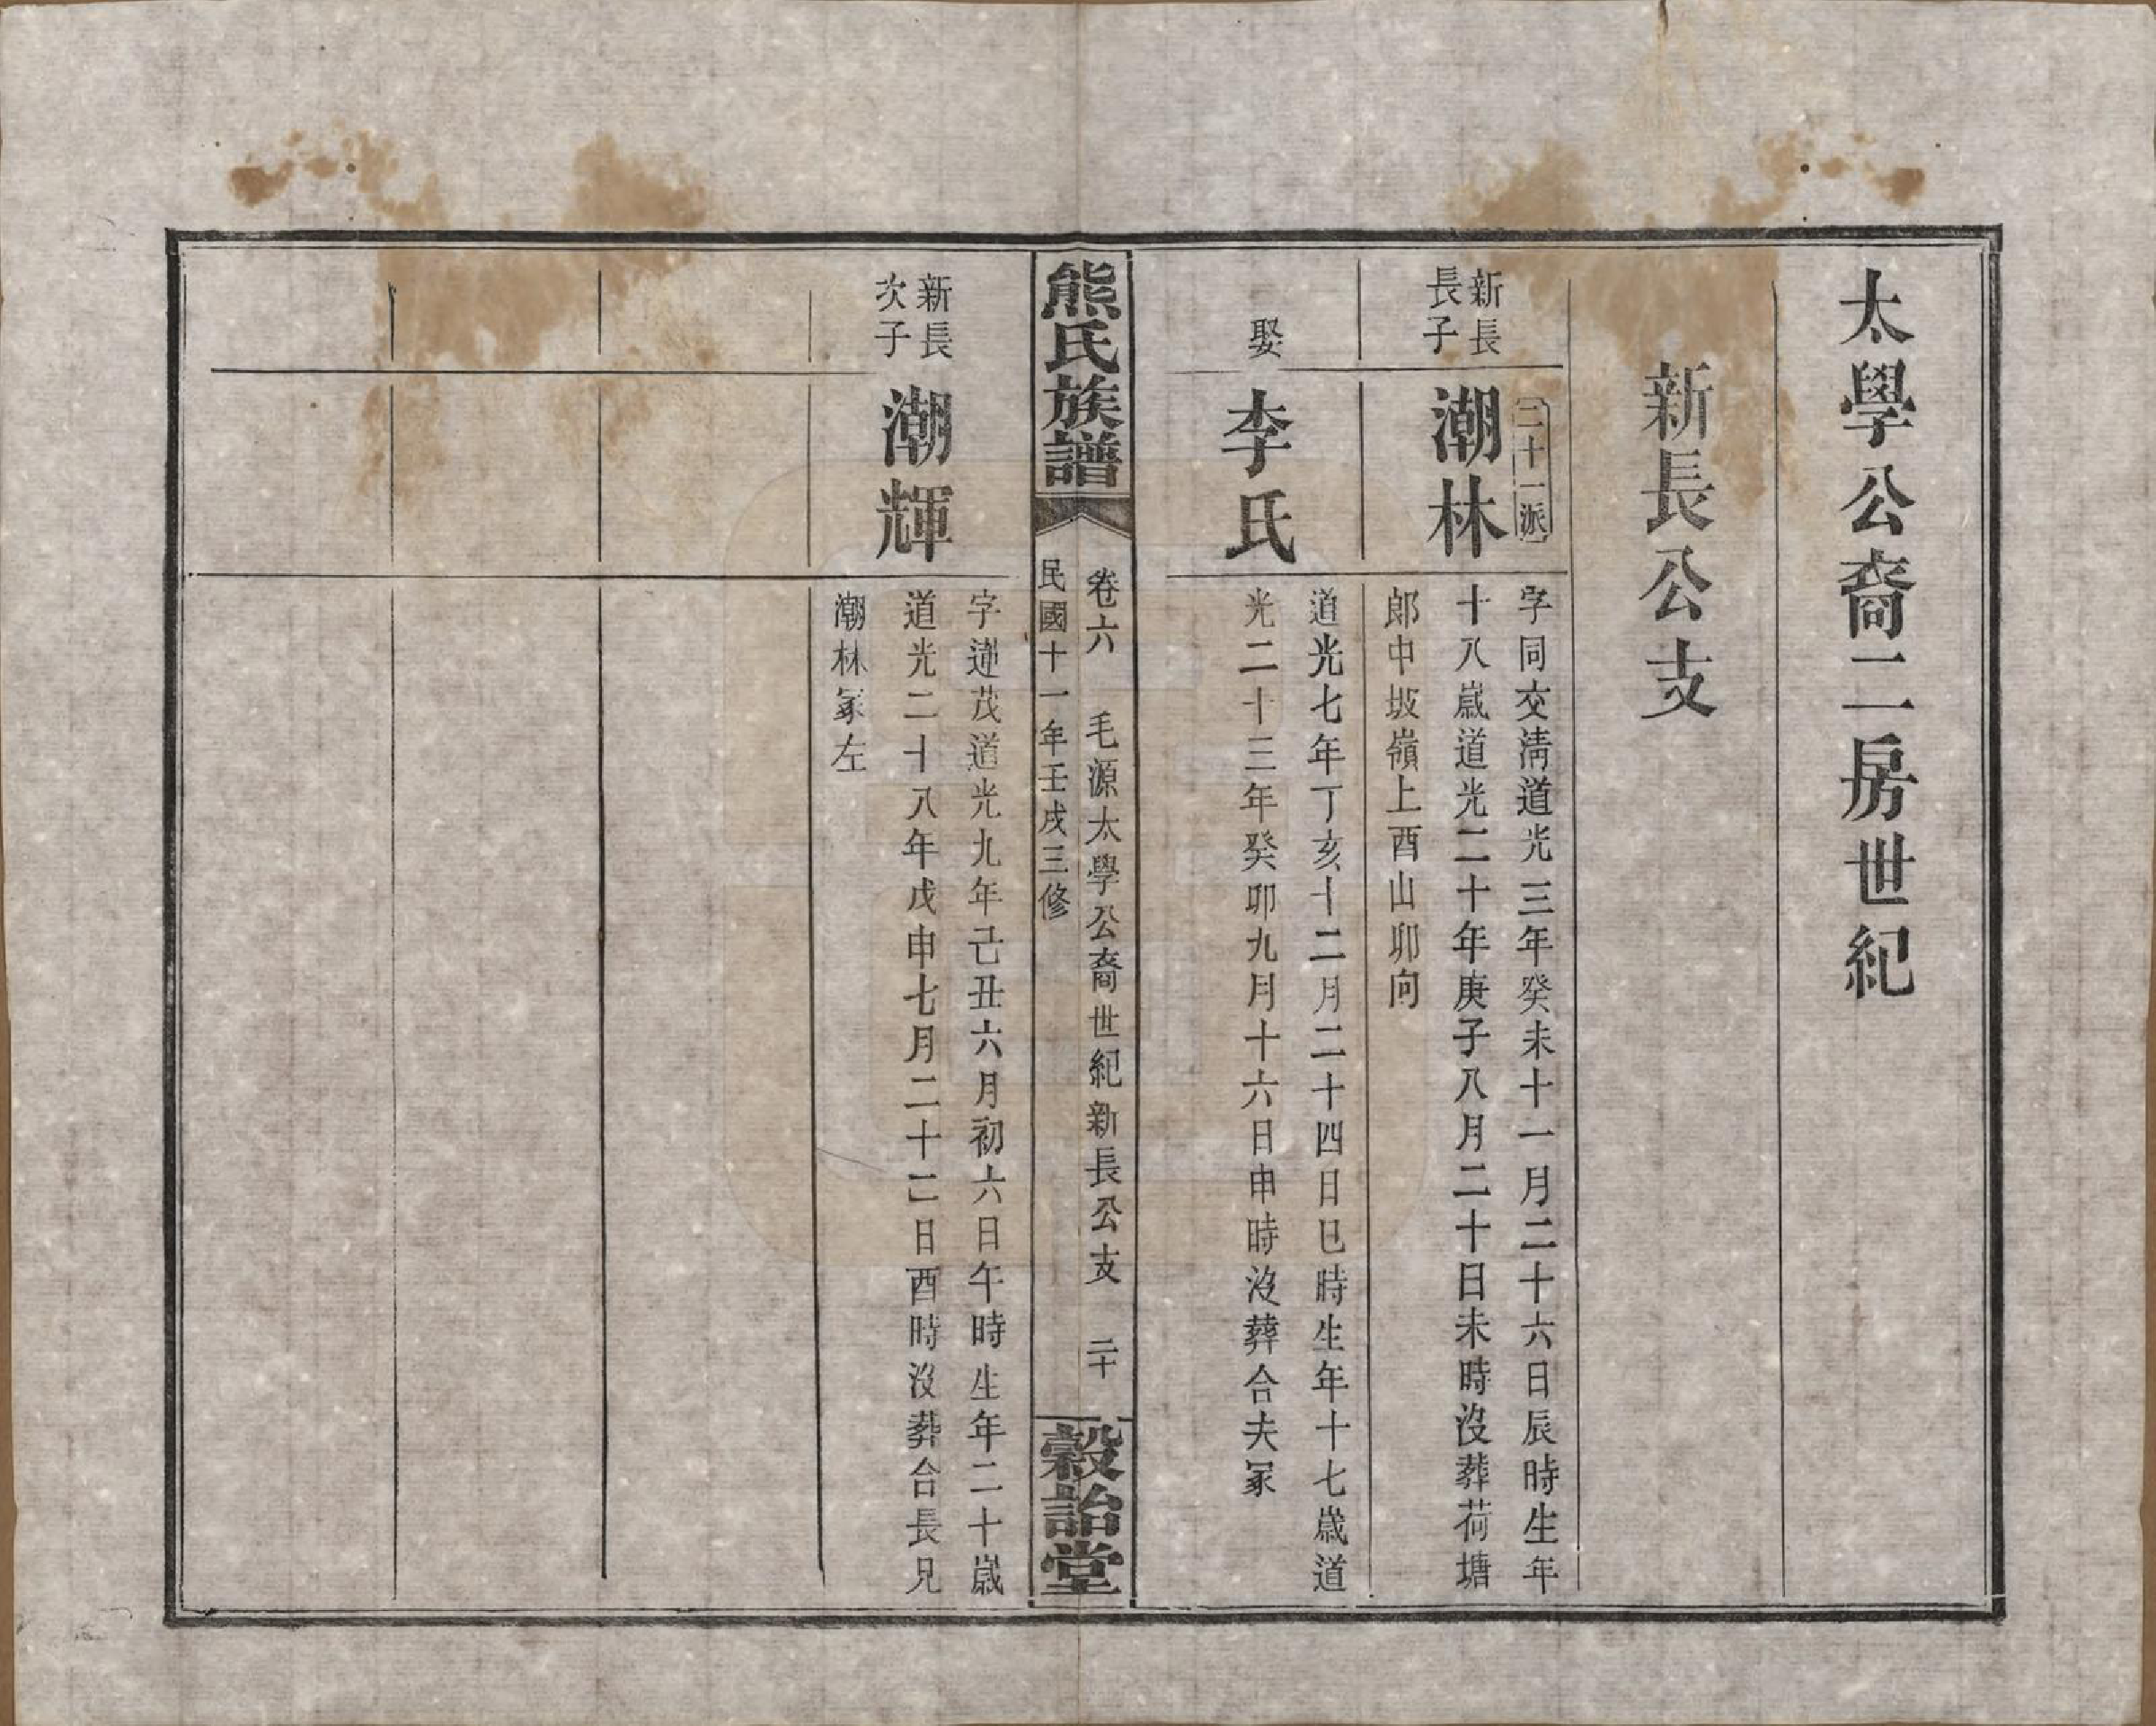 太學公裔二房世紀
新長公支
新長
長子
三十一派
潮林
字同交淸道光三年癸未十一月二十六日辰時生年
十八歲道光二十年庚子八月二十日未時沒葬荷塘
郞中坂嶺上酉山卯向
娶
李氏
道光七年丁亥十二月二十四日巳時生年十七歲道
光二十三年癸卯九月十六日申時沒葬合夫冢
熊氏族譜
卷六 毛源太學公裔世紀新長公支 二十
民國十一年壬戌三修
穀詒堂
新長
次子
潮輝
字迎茂道光九年己丑六月初六日午時生年二十歲
道光二十八年戊申七月二十二日酉時沒葬合長兄
潮林冢左